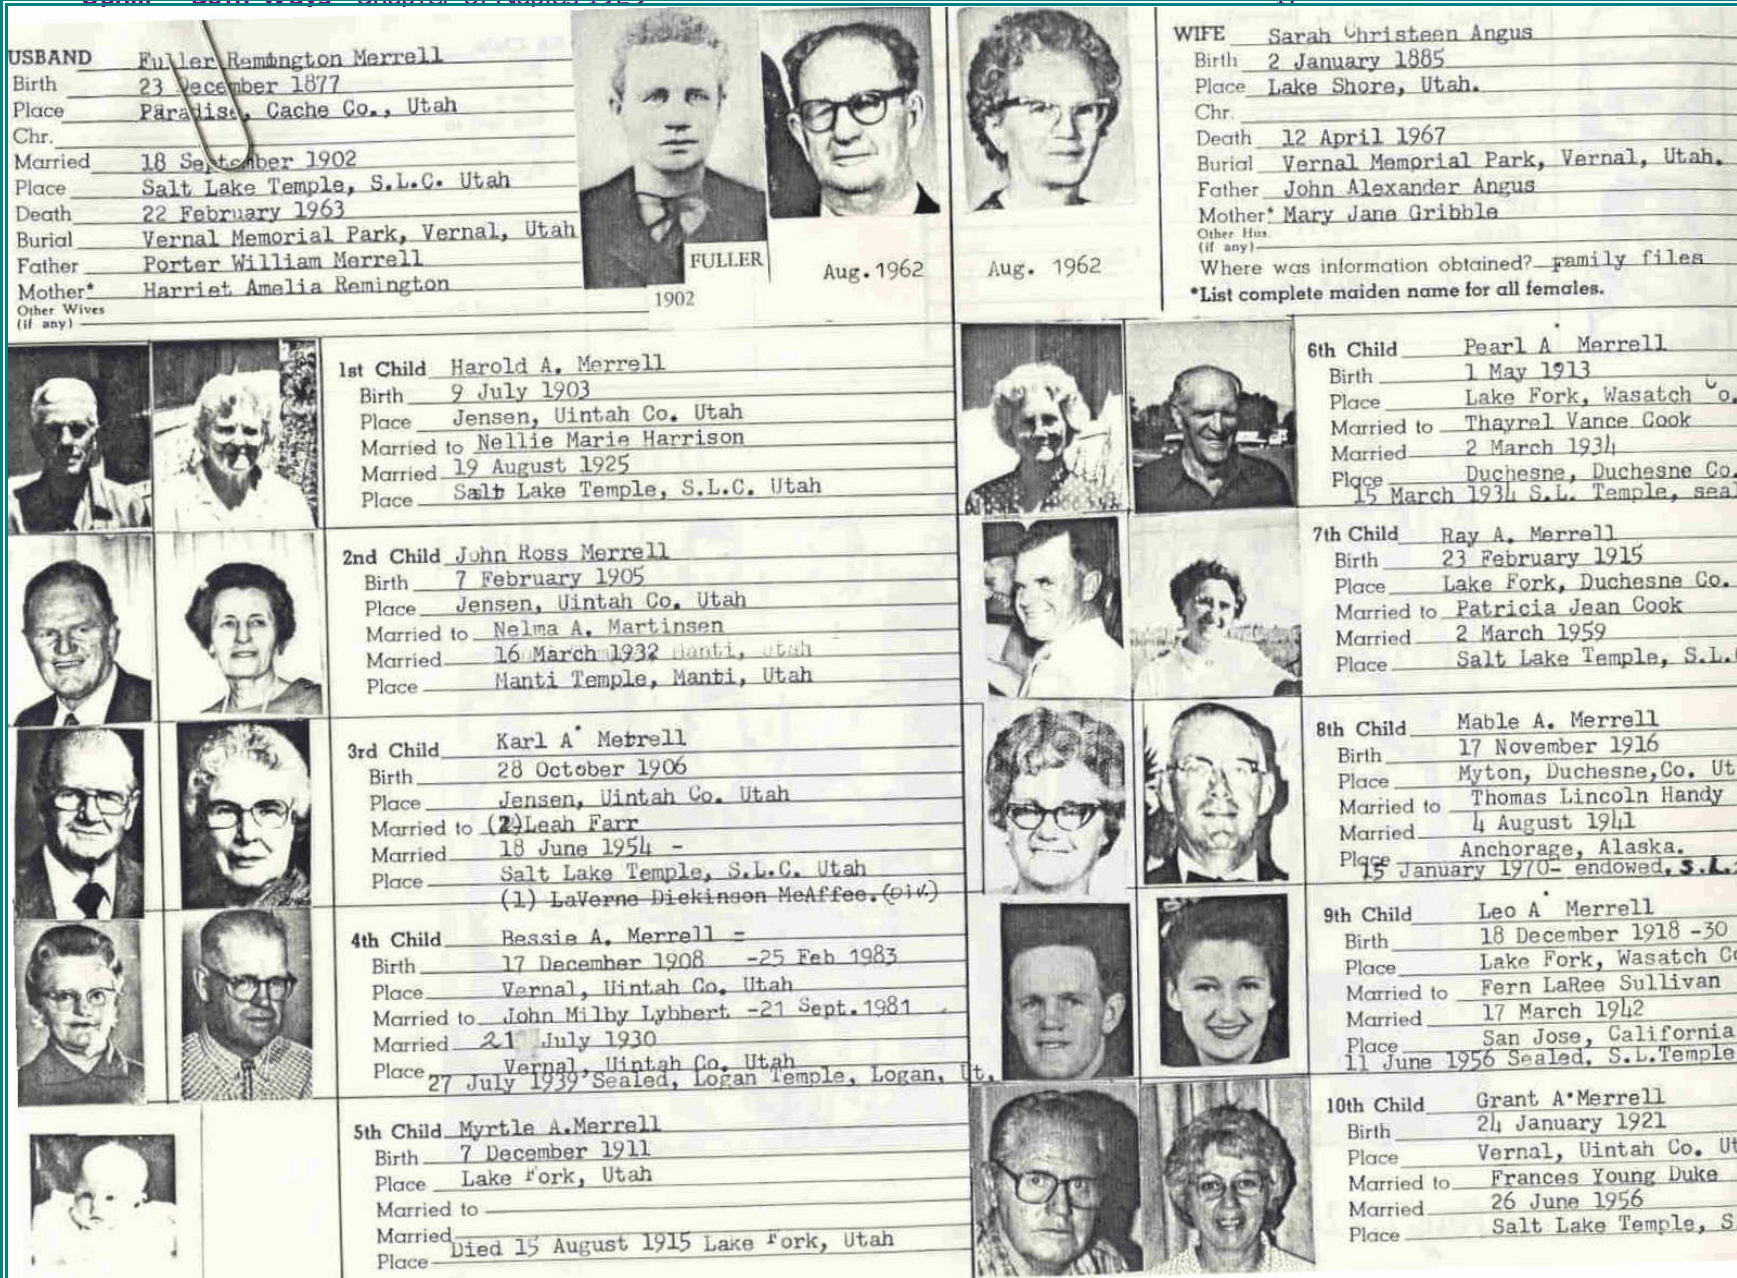 USBAND Fuller Remington Merrell
Birth 23 December 1877
Place Paradise, Cache Co., Utah
Chr.
Married 18 September 1902
Place Salt Lake Temple, S.L.C. Utah
Death 22 February 1963
Burial Vernal Memorial Park, Vernal, Utah
Father Porter William Merrell
Mother* Harriet Amelia Remington
Other Wives
(if any)
FULLER
1902
Aug. 1962
Aug. 1962
WIFE Sarah Christeen Angus
Birth 2 January 1885
Place Lake Shore, Utah.
Chr.
Death 12 April 1967
Burial Vernal Memorial Park, Vernal, Utah.
Father John Alexander Angus
Mother* Mary Jane Gribble
Other Hus.
(if any)
Where was information obtained? Family files
*List complete maiden name for all females.
1st Child Harold A. Merrell
Birth 9 July 1903
Place Jensen, Uintah Co. Utah
Married to Nellie Marie Harrison
Married 19 August 1925
Place Salt Lake Temple, S.L.C. Utah
2nd Child John Ross Merrell
Birth 7 February 1905
Place Jensen, Uintah Co. Utah
Married to Nelma A. Martinsen
Married 16 March 1932 Manti, Utah
Place Manti Temple, Manti, Utah
3rd Child Karl A. Merrell
Birth 28 October 1906
Place Jensen, Uintah Co. Utah
Married to (2) Leah Farr
Married 18 June 1954 -
Place Salt Lake Temple, S.L.C. Utah
(1) LaVerne Dickinson McAffee. (Div.)
4th Child Bessie A. Merrell =
Birth 17 December 1908 -25 Feb 1983
Place Vernal, Uintah Co. Utah
Married to John Milby Lybbert -21 Sept. 1981
Married 21 July 1930
Place Vernal, Uintah Co. Utah
27 July 1939 Sealed, Logan Temple, Logan, Ut.
5th Child Myrtle A. Merrell
Birth 7 December 1911
Place Lake Fork, Utah
Married to
Married
Died 15 August 1915 Lake Fork, Utah
Place
6th Child Pearl A. Merrell
Birth 1 May 1913
Place Lake Fork, Wasatch Co.
Married to Thayrel Vance Cook
Married 2 March 1934
Place Duchesne, Duchesne Co.
15 March 1934 S.L. Temple, seal
7th Child Ray A. Merrell
Birth 23 February 1915
Place Lake Fork, Duchesne Co.
Married to Patricia Jean Cook
Married 2 March 1959
Place Salt Lake Temple, S.L.
8th Child Mable A. Merrell
Birth 17 November 1916
Place Myton, Duchesne, Co. Ut
Married to Thomas Lincoln Handy
Married 4 August 1941
Place Anchorage, Alaska.
15 January 1970- endowed, S.L.
9th Child Leo A. Merrell
Birth 18 December 1918 -30
Place Lake Fork, Wasatch Co
Married to Fern LaRee Sullivan
Married 17 March 1942
Place San Jose, California
11 June 1956 Sealed, S.L. Temple
10th Child Grant A. Merrell
Birth 24 January 1921
Place Vernal, Uintah Co. Ut
Married to Frances Young Duke
Married 26 June 1956
Place Salt Lake Temple, S